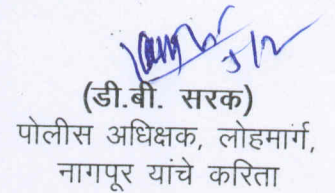 (डी.बी. सरक)
पोलीस अधिक्षक, लोहमार्ग,
नागपूर यांचे करिता